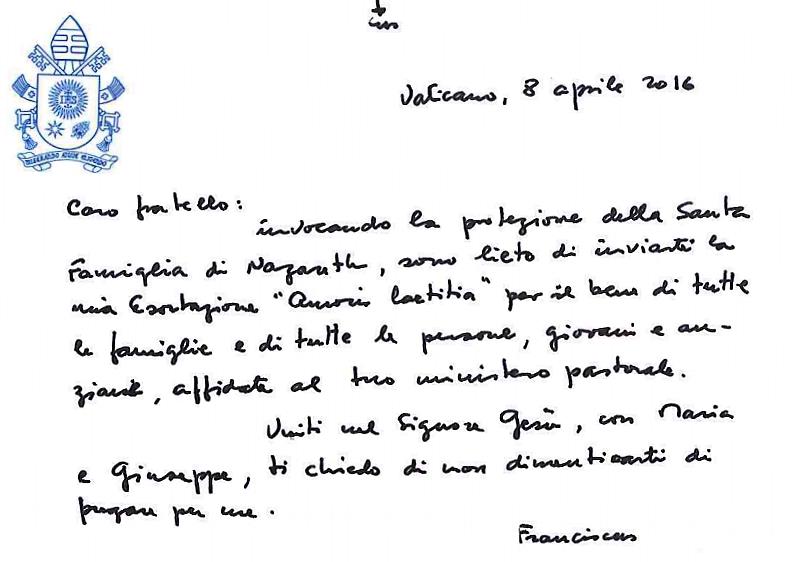 Vaticano, 8 aprile 2016
IHS
MISERANDO ATQUE ELIGENDO
Caro fratello:
invocando la protezione della Santa
Famiglia di Nazareth, sono lieto di inviarti la
mia Esortazione "Amoris laetitia" per il bene di tutte
le famiglie e di tutte le persone, giovani e an-
ziane, affidate al tuo ministero pastorale.
Uniti nel Signore Gesù, con Maria
e Giuseppe, ti chiedo di non dimenticarti di
pregare per me.
Franciscus